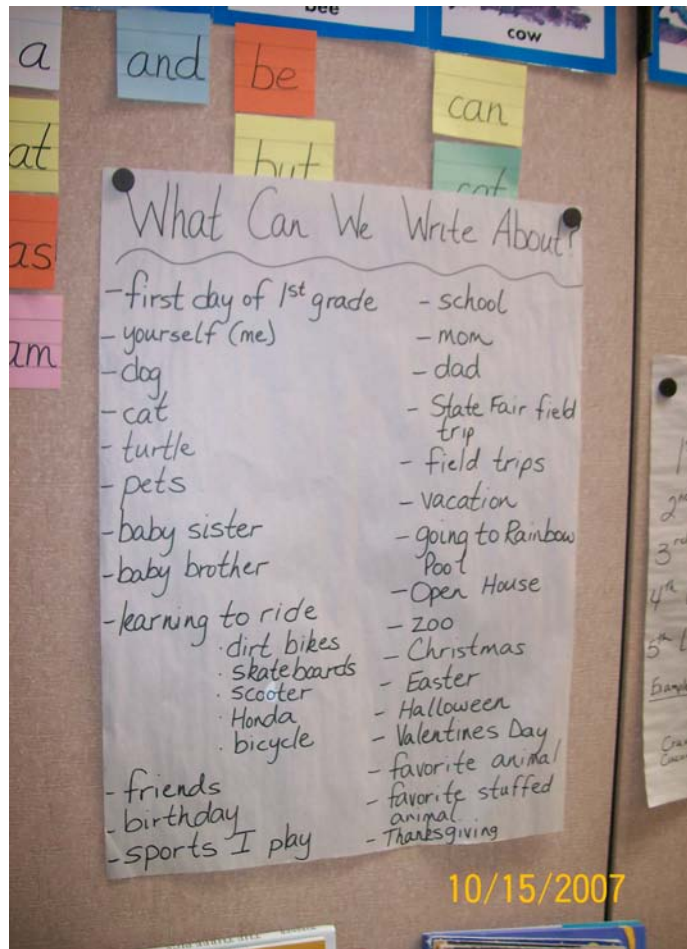 bee
cow
a
and
be
can
at
but
cat
as
am
What Can We Write About?
- first day of 1st grade
- yourself (me)
- dog
- cat
- turtle
- pets
- baby sister
- baby brother
- learning to ride
· dirt bikes
· skateboards
· scooter
· Honda
· bicycle
- friends
- birthday
- sports I play
- school
- mom
- dad
- State Fair field
trip
- field trips
- vacation
- going to Rainbow
Pool
- Open House
- zoo
- Christmas
- Easter
- Halloween
- Valentines Day
- favorite animal
- favorite stuffed
animal
- Thanksgiving
2nd
3rd
4th
5th
10/15/2007